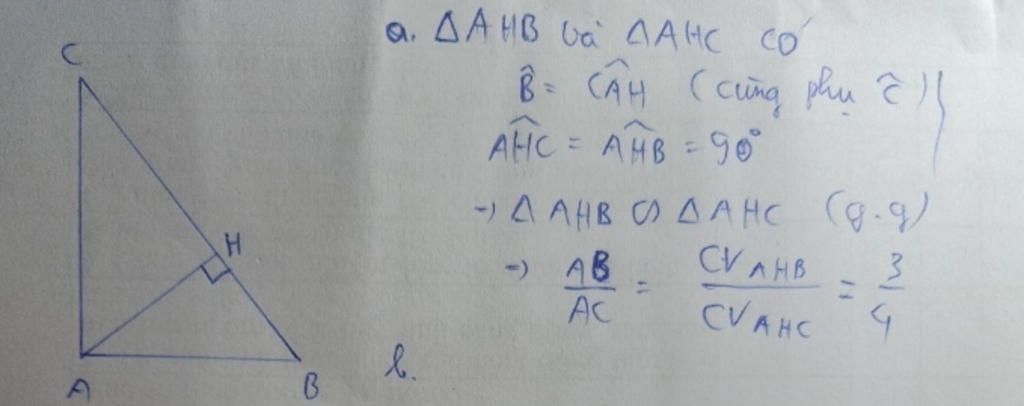 a. ΔAHB và ΔAHC có
B̂ = CÂH (cùng phụ Ĉ)
AĤC = AĤB = 90°
→ ΔAHB ∽ ΔAHC (g.g)
→ AB/AC = CV AHB / CV AHC = 3/4
b.
C
H
A
B